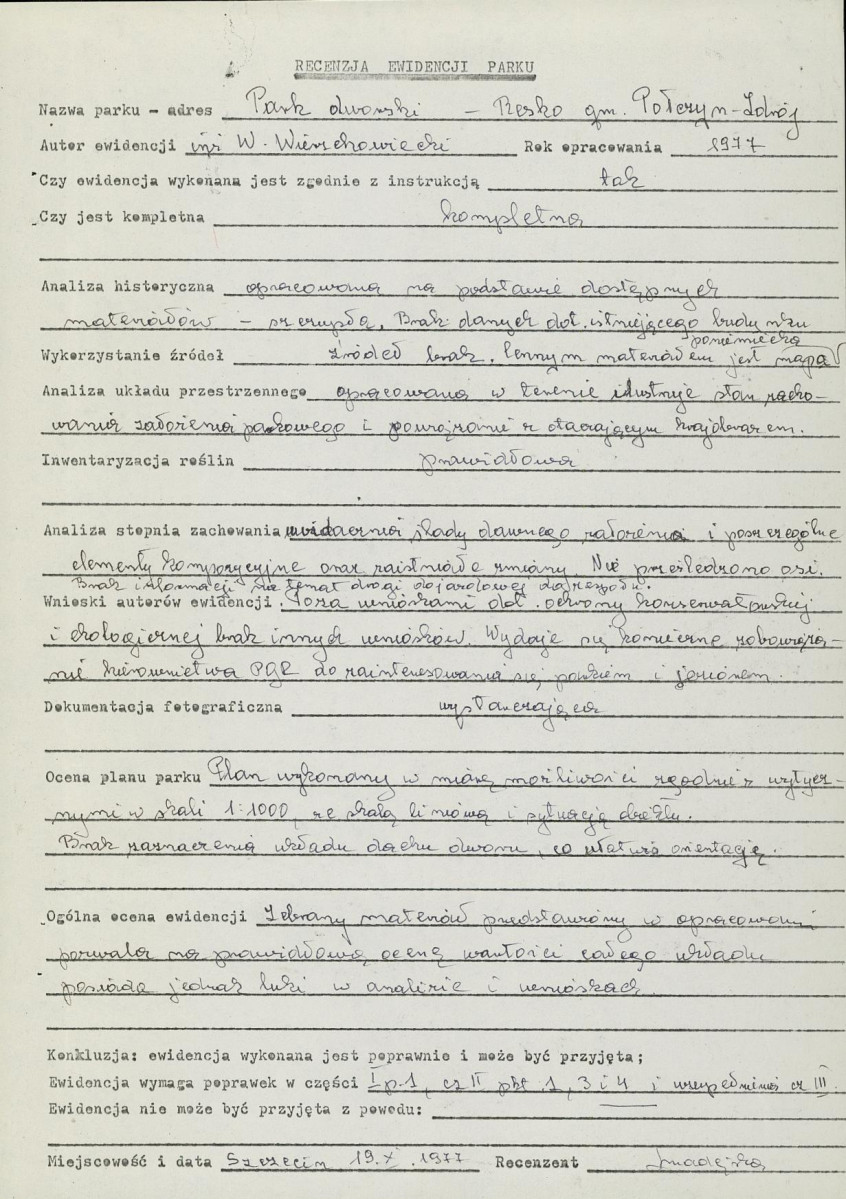 RECENZJA EWIDENCJI PARKU
Nazwa parku - adres Park dworski - Resko gm. Połczyn-Zdrój
Autor ewidencji inż W. Wierzchowiecki Rok opracowania 1977
Czy ewidencja wykonana jest zgodnie z instrukcją tak
Czy jest kompletna kompletna
Analiza historyczna opracowana na podstawie dostępnych
materiałów - szczupła. Brak danych dot. istniejącego budynku
poniemiecka
Wykorzystanie źródeł źródeł brak. Cennym materiałem jest mapa
Analiza układu przestrzennego opracowana w terenie ilustruje stan zacho-
wania założenia parkowego i powiązanie z otaczającym krajobrazem.
Inwentaryzacja roślin prawidłowa
Analiza stopnia zachowania uwidacznia ślady dawnego założenia i poszczególne
elementy kompozycyjne oraz zaistniałe zmiany. Nie prześledzono osi.
Brak informacji na temat drogi dojazdowej do zespołu.
Wnioski autorów ewidencji. Poza wnioskami dot. ochrony konserwatorskiej
i ekologicznej brak innych wniosków. Wydaje się konieczne zobowiąza-
nie kierownictwa PGR do zainteresowania się parkiem i jeziorem.
Dokumentacja fotograficzna wystarczająca
Ocena planu parku Plan wykonany w miarę możliwości zgodnie z wytycz-
nymi w skali 1:1000, ze skalą liniową i sytuacją działu.
Brak zaznaczenia układu dachu dworu, co ułatwia orientację.
Ogólna ocena ewidencji Zebrany materiał przedstawiony w opracowaniu
pozwala na prawidłową ocenę wartości całego układu
posiada jednak luki w analizie i wnioskach.
Konkluzja: ewidencja wykonana jest poprawnie i może być przyjęta;
Ewidencja wymaga poprawek w części I p.1, cz II pkt .1, 3 i 4 i uzupełnienia cz III.
Ewidencja nie może być przyjęta z powodu:
Miejscowość i data Szczecin 19.X.1977 Recenzent